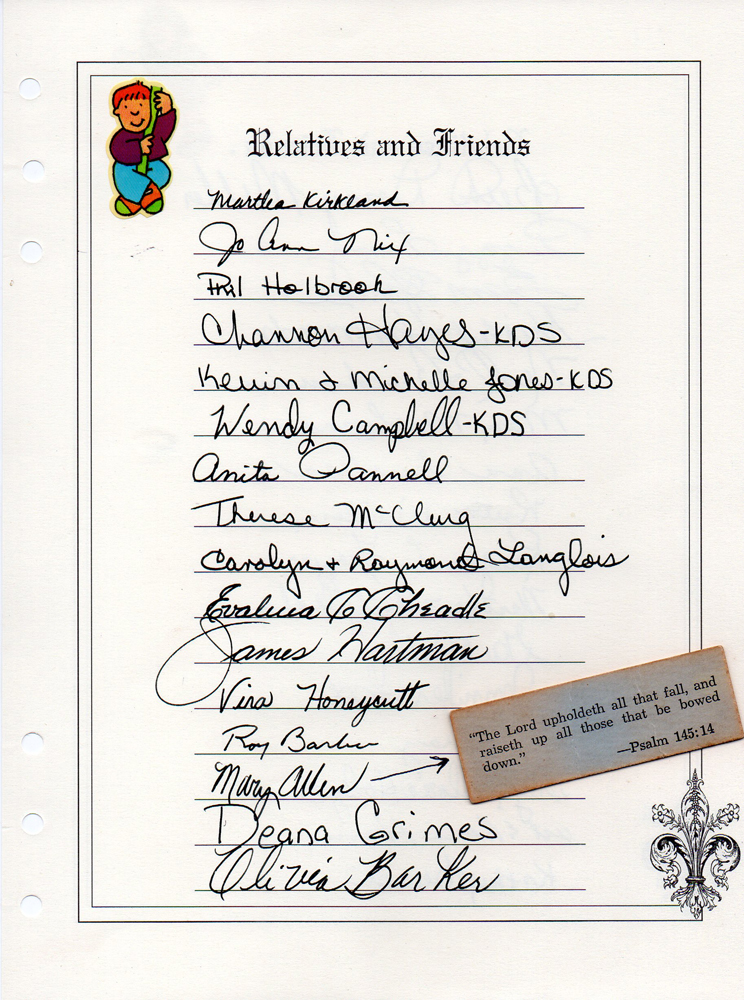 Relatives and Friends
Martha Kirkland
Jo Ann Nix
Phil Holbrook
Channon Hayes-KDS
Kevin & Michelle Jones-KDS
Wendy Campbell-KDS
Anita Pannell
Therese McClurg
Carolyn + Raymond Langlois
Evalina C Cheadle
James Hartman
Vira Honeycutt
Roy Barker
Mary Allen
"The Lord upholdeth all that fall, and
raiseth up all those that be bowed
down."
—Psalm 145:14
Deana Grimes
Olivia Barker